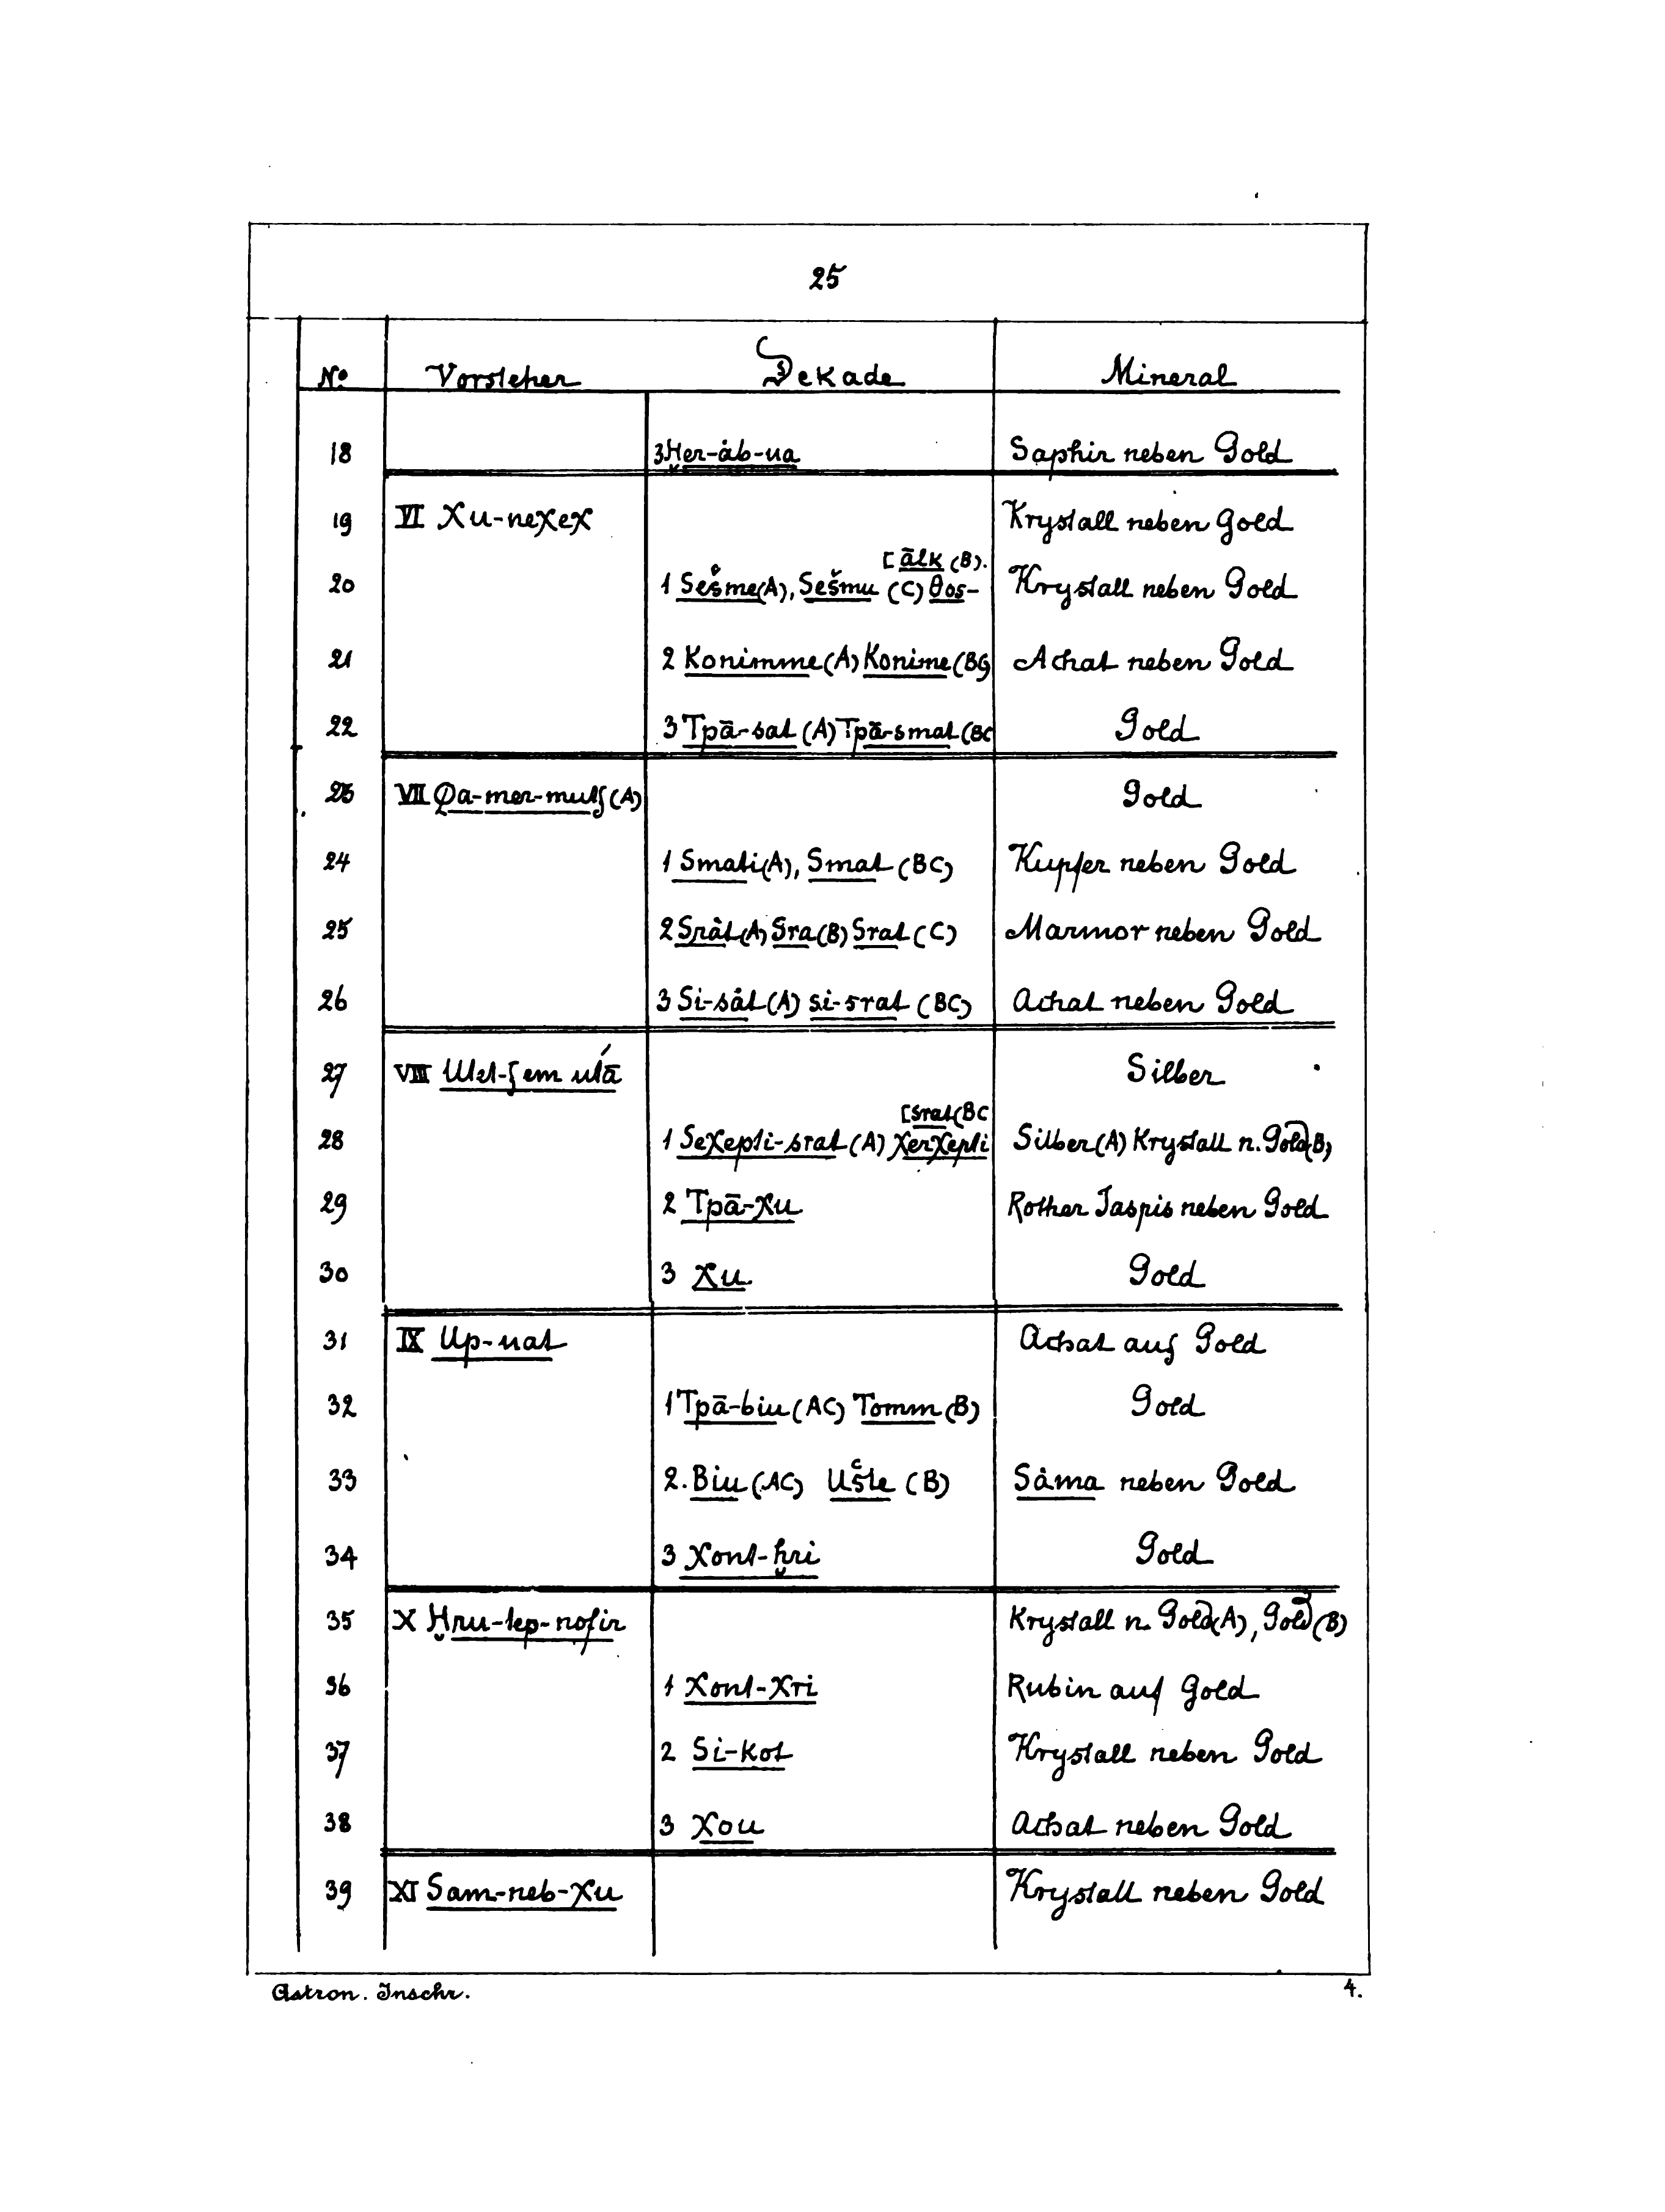 25
Nº Vorsteher Dekade Mineral
18 3 Ḥer-åb-ua Saphir neben Gold
19 VI Xu-neXeX Krystall neben Gold
[ālk (B).
20 1 Sešme(A), Sešmu (C) θos- Krystall neben Gold
21 2 Konimme(A) Konime(BC) Achat neben Gold
22 3 Tpā-sat (A) Tpā-smat (BC Gold
23 VII (A) Gold
24 1 Smati(A), Smat (BC) Kupfer neben Gold
25 2 Sråt(A) Sra(B) Srat (C) Marmor neben Gold
26 3 Si-såt(A) si-srat (BC) Achat neben Gold
27 VIII Silber
[srat(BC
28 1 SeXepti-srat (A) XerXepti Silber(A) Krystall n. Gold(B)
29 2 Tpā-Xu Rother Jaspis neben Gold
30 3 Xu Gold
31 IX Up-uat Achat auf Gold
32 1 Tpā-biu (AC) Tomm (B) Gold
33 2. Biu (AC) Ušte (B) Såma neben Gold
34 3 Xont-ḥri Gold
35 X Ḥru-tep-nofir Krystall n. Gold(A), Gold (B)
36 1 Xont-Xri Rubin auf Gold
37 2 Si-kot Krystall neben Gold
38 3 Xou Achat neben Gold
39 XI Sam-neb-Xu Krystall neben Gold
Astron. Inschr. 4.